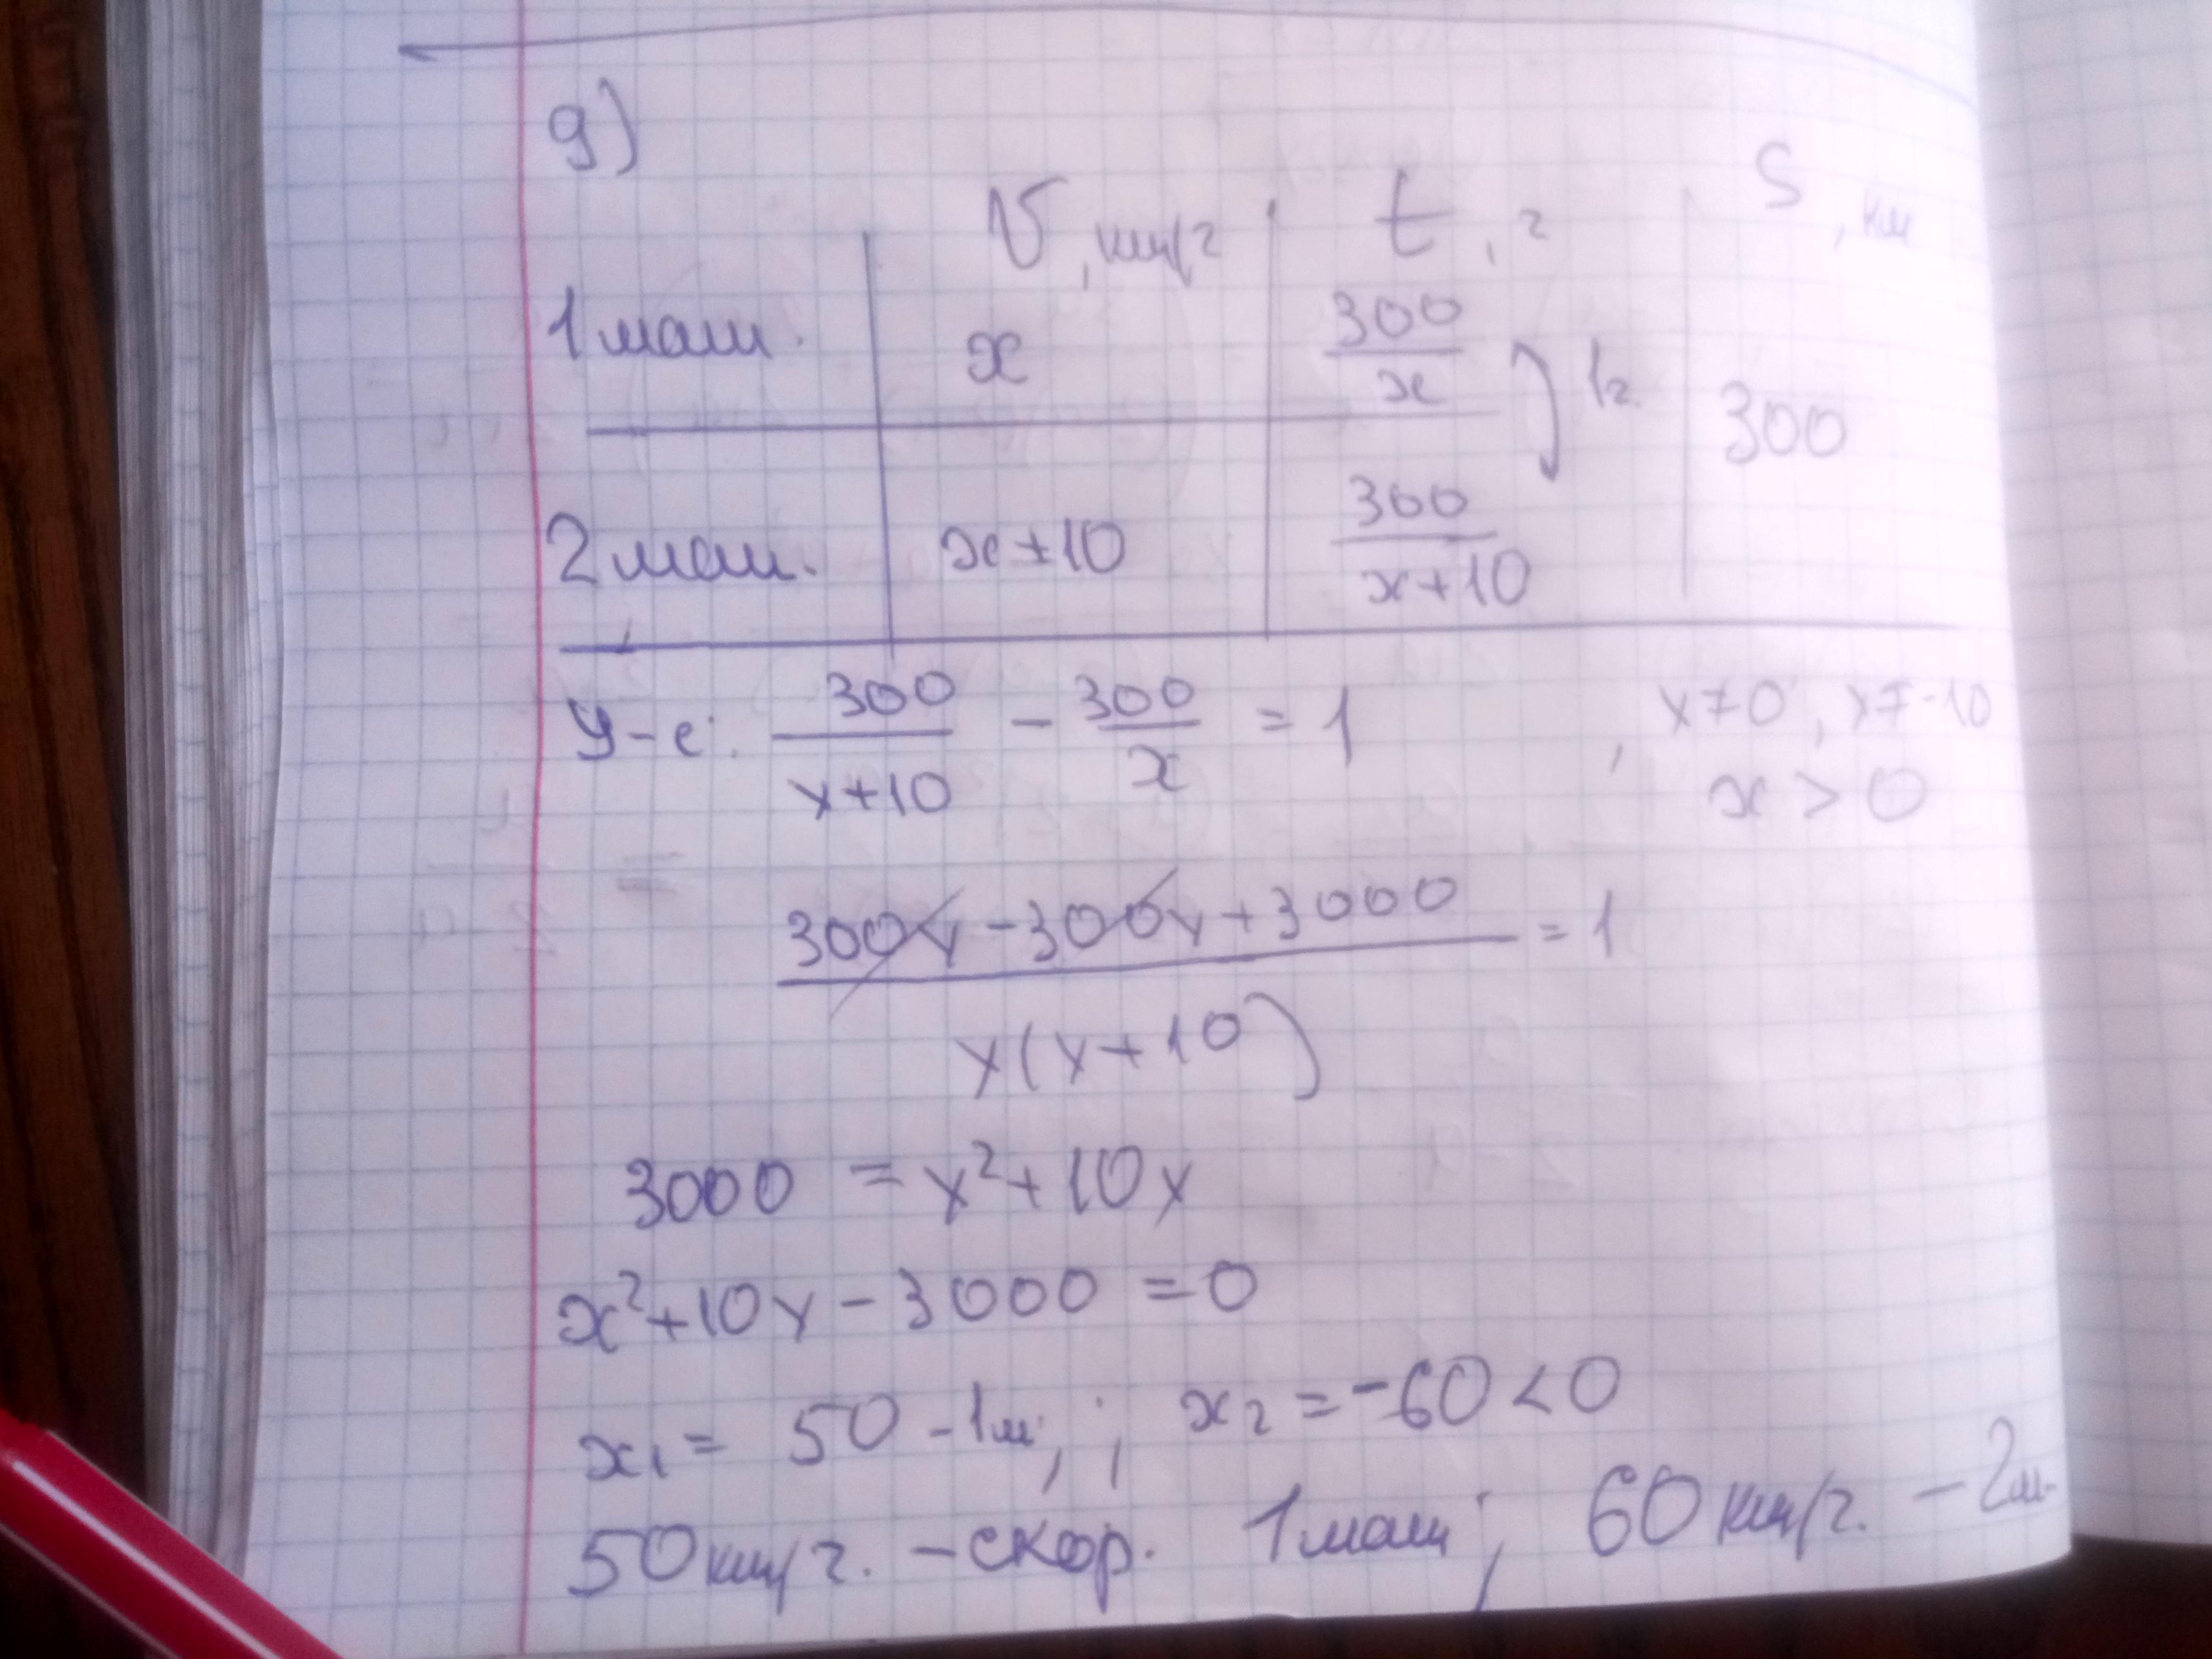 9)
V, км/г t, г S, км
1 маш. x 300/x 1г. 300
2 маш. x+10 300/x+10
У-е: 300/x+10 - 300/x = 1 , x≠0, x≠-10
x > 0
300x - 300x + 3000 / x(x+10) = 1
3000 = x²+10x
x²+10x - 3000 = 0
x₁ = 50 - 1м; ; x₂ = -60 < 0
50км/г. - скор. 1 маш; 60 км/г. - 2м.